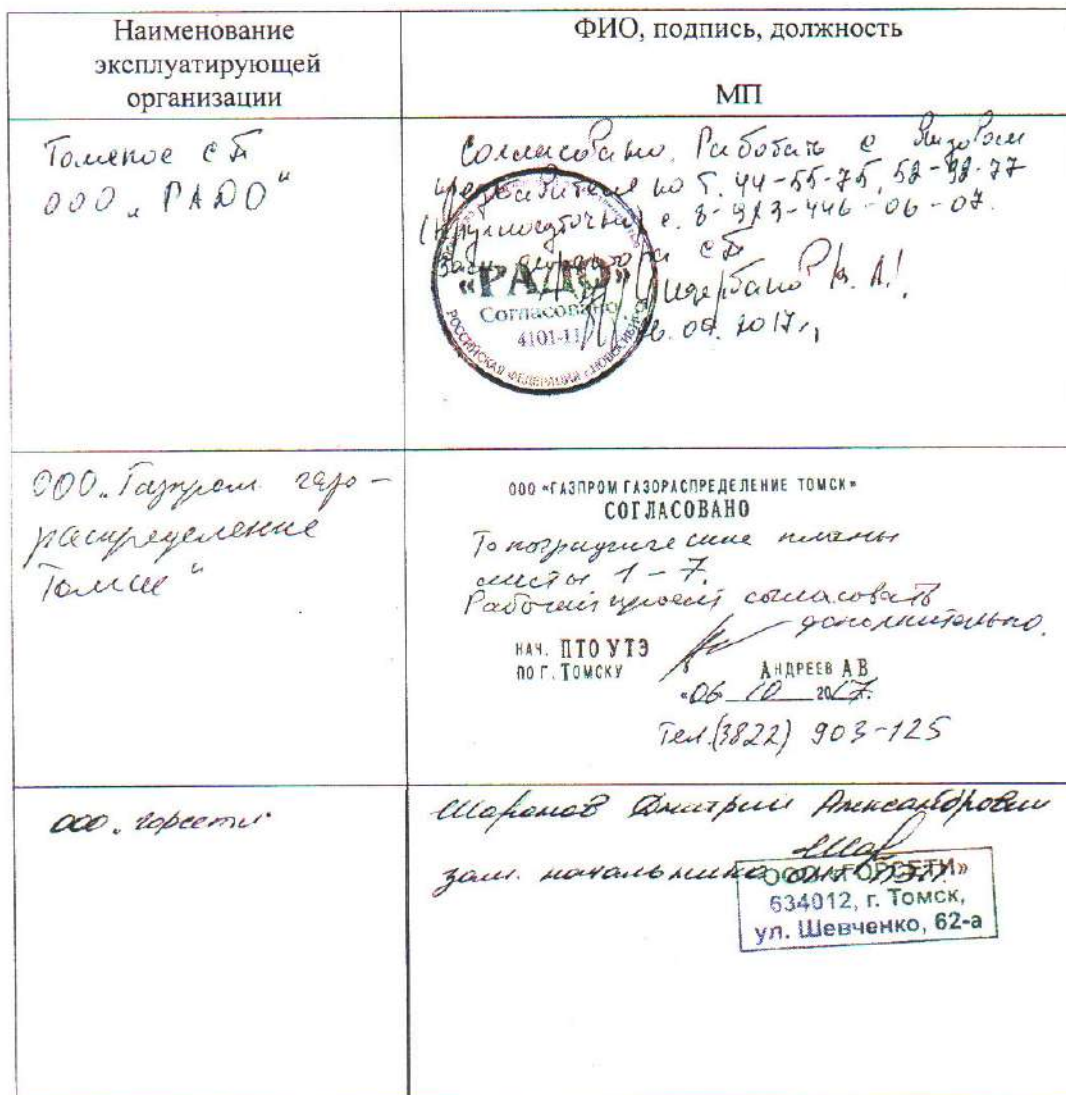 Наименование
эксплуатирующей
организации
ФИО, подпись, должность
МП
Томское СП
ООО „РАДО“
Согласовано. Работать с вызовом
представителя по т. 44-55-75, 52-98-77
(круглосуточно) с. 8-913-446-06-07.
Зам. директора СП
Щербаков А.
.09.2017г.
«РАДО»
Согласовано
4101-11
РОССИЙСКАЯ ФЕДЕРАЦИЯ г. НОВОСИБИРСК
ООО „Газпром газо-
распределение
Томск“
ООО «ГАЗПРОМ ГАЗОРАСПРЕДЕЛЕНИЕ ТОМСК»
СОГЛАСОВАНО
Топографические планы
листы 1-7.
Рабочий проект согласовать
дополнительно.
НАЧ. ПТО УТЭ
ПО Г. ТОМСКУ
АНДРЕЕВ АВ
«06» 10 2017г.
Тел.(3822) 903-125
ООО „Горсети“
Шаранов Дмитрий Александрович
зам. начальника
ООО «ГОРСЕТИ»
634012, г. Томск,
ул. Шевченко, 62-а